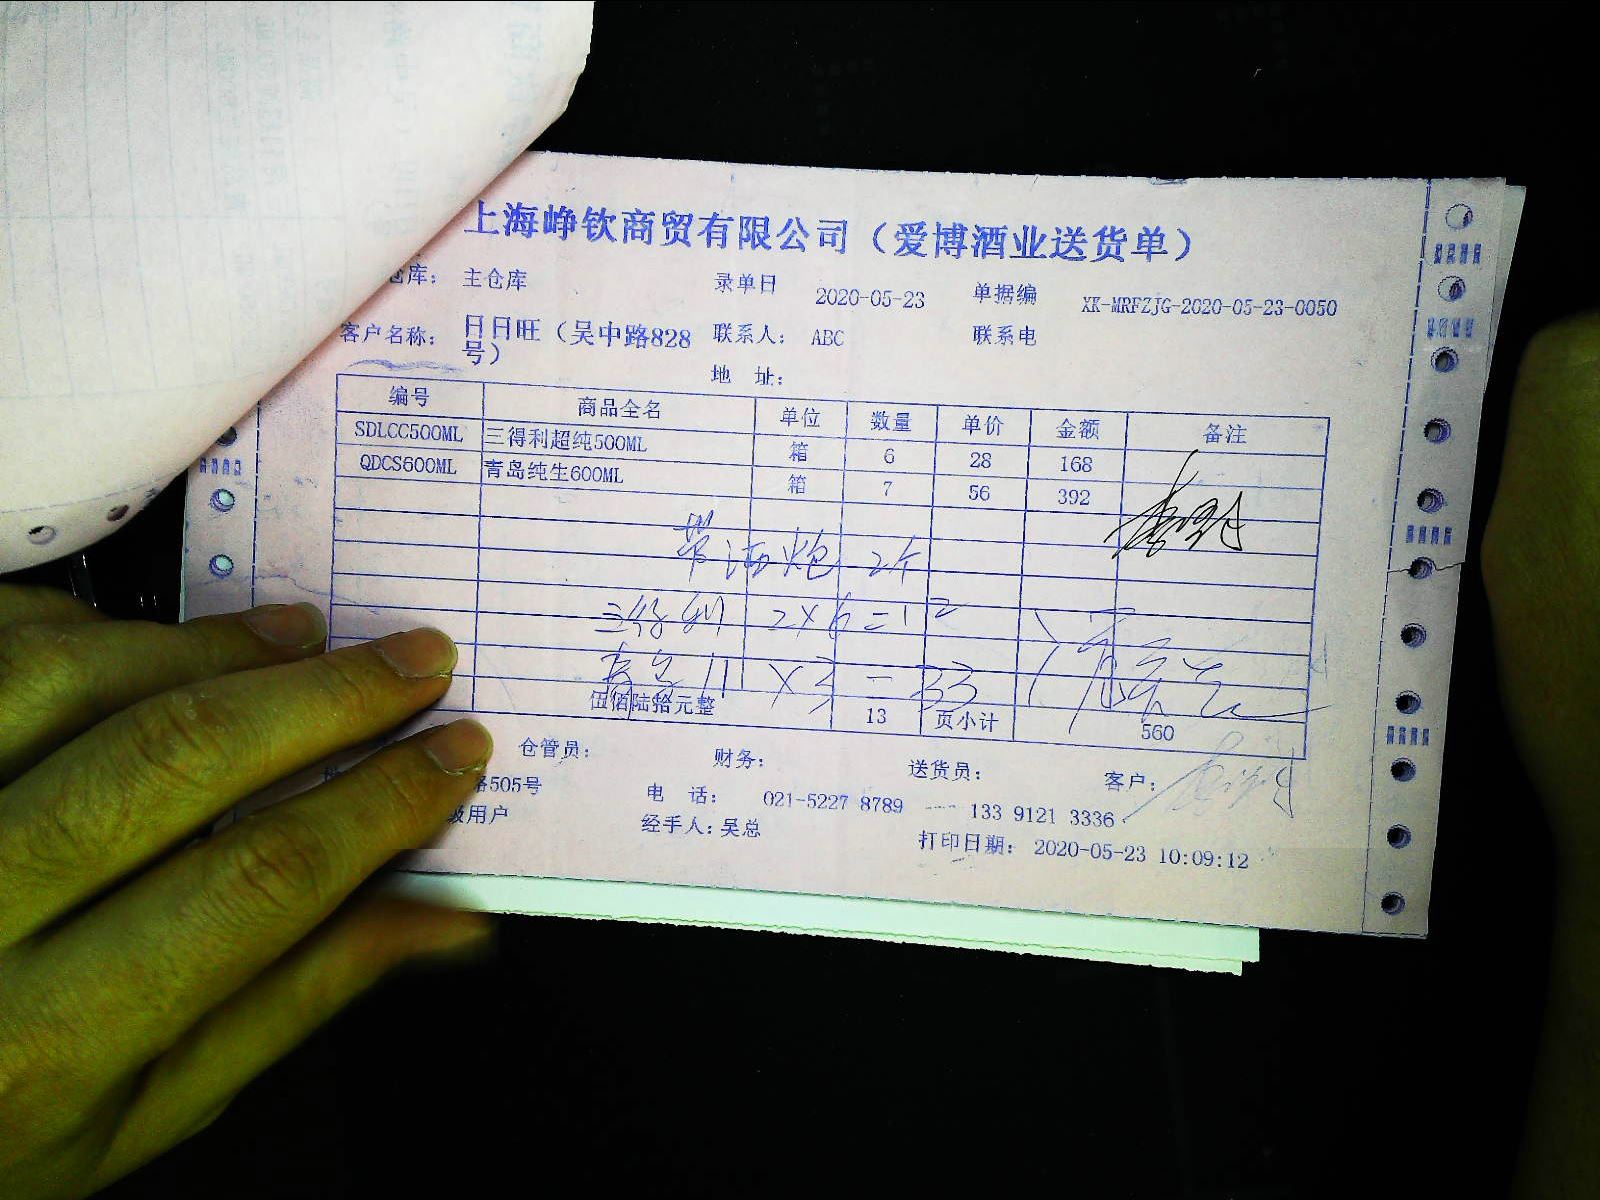 上海峥钦商贸有限公司（爱博酒业送货单）
仓库： 主仓库 录单日 2020-05-23 单据编 XK-MRFZJG-2020-05-23-0050
客户名称： 日日旺（吴中路828号） 联系人： ABC 联系电
地 址：
编号 商品全名 单位 数量 单价 金额 备注
SDLCC500ML 三得利超纯500ML 箱 6 28 168
QDCS600ML 青岛纯生600ML 箱 7 56 392
带酒炮 2个
三得利 2×6=12
11×3=33
伍佰陆拾元整 13 页小计 560
仓管员： 财务： 送货员： 客户：
路505号 电 话： 021-5227 8789 ---- 133 9121 3336
级用户 经手人：吴总 打印日期： 2020-05-23 10:09:12